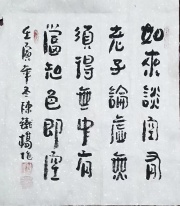 如來談空有
老子論虛無
須得無中有
當知色即空
壬寅年冬陳